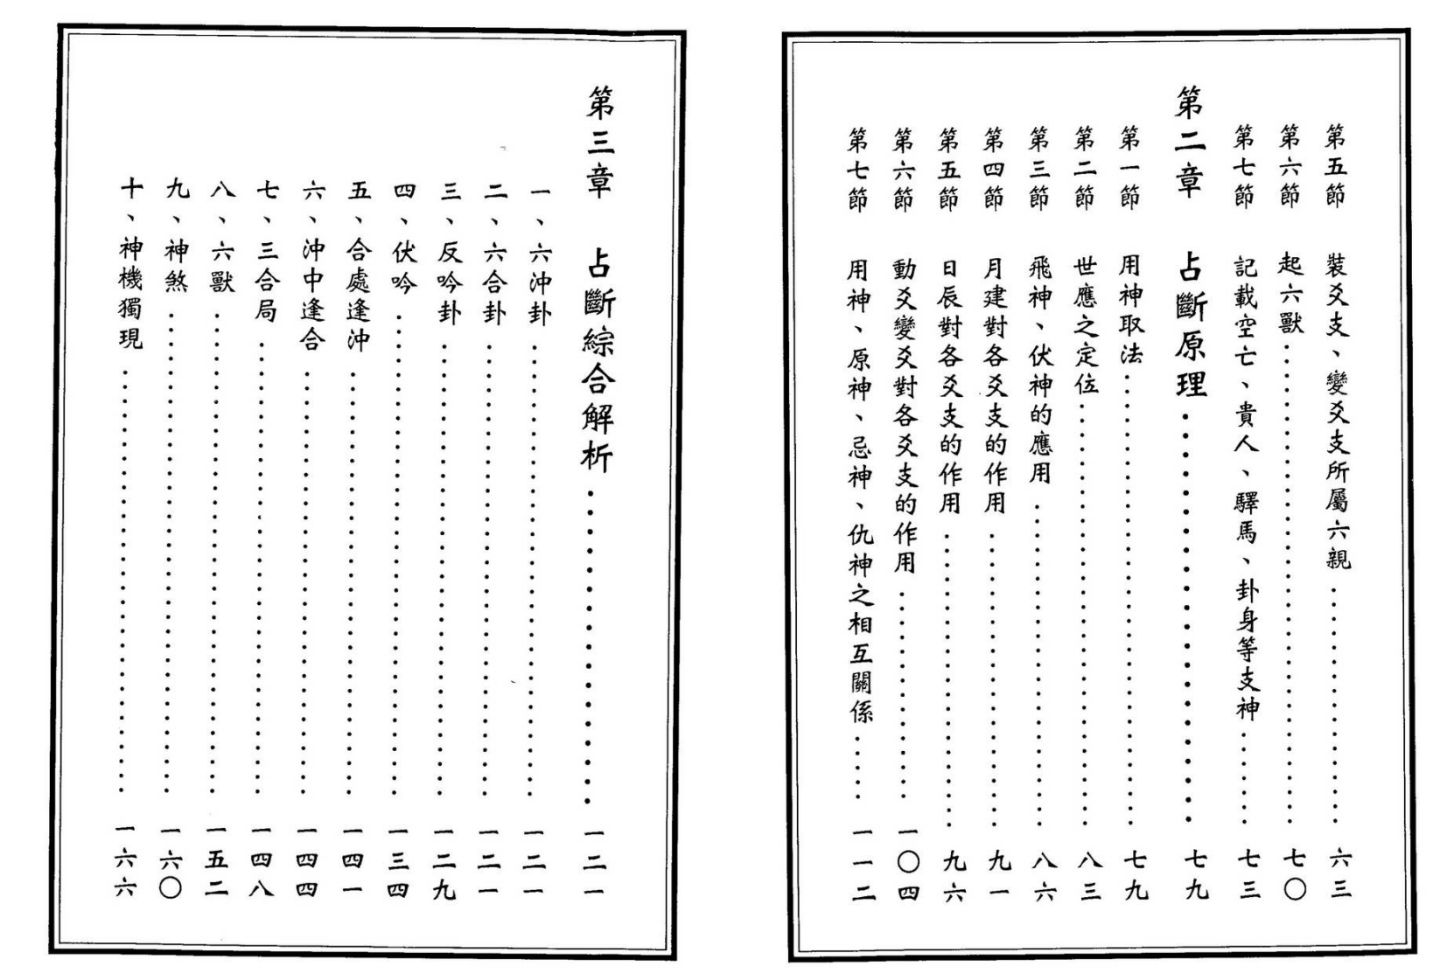 第五節　裝爻支、變爻支所屬六親⋯⋯⋯⋯六三
第六節　起六獸⋯⋯⋯⋯七〇
第七節　記載空亡、貴人、驛馬、卦身等支神⋯⋯⋯⋯七三
第二章　占斷原理⋯⋯⋯⋯七九
第一節　用神取法⋯⋯⋯⋯七九
第二節　世應之定位⋯⋯⋯⋯八三
第三節　飛神、伏神的應用⋯⋯⋯⋯八六
第四節　月建對各爻支的作用⋯⋯⋯⋯九一
第五節　日辰對各爻支的作用⋯⋯⋯⋯九六
第六節　動爻變爻對各爻支的作用⋯⋯⋯⋯一〇四
第七節　用神、原神、忌神、仇神之相互關係⋯⋯⋯⋯一一二
第三章　占斷綜合解析⋯⋯⋯⋯一二一
一、六沖卦⋯⋯⋯⋯一二一
二、六合卦⋯⋯⋯⋯一二一
三、反吟卦⋯⋯⋯⋯一二九
四、伏吟⋯⋯⋯⋯一三四
五、合處逢沖⋯⋯⋯⋯一四一
六、沖中逢合⋯⋯⋯⋯一四四
七、三合局⋯⋯⋯⋯一四八
八、六獸⋯⋯⋯⋯一五二
九、神煞⋯⋯⋯⋯一六〇
十、神機獨現⋯⋯⋯⋯一六六